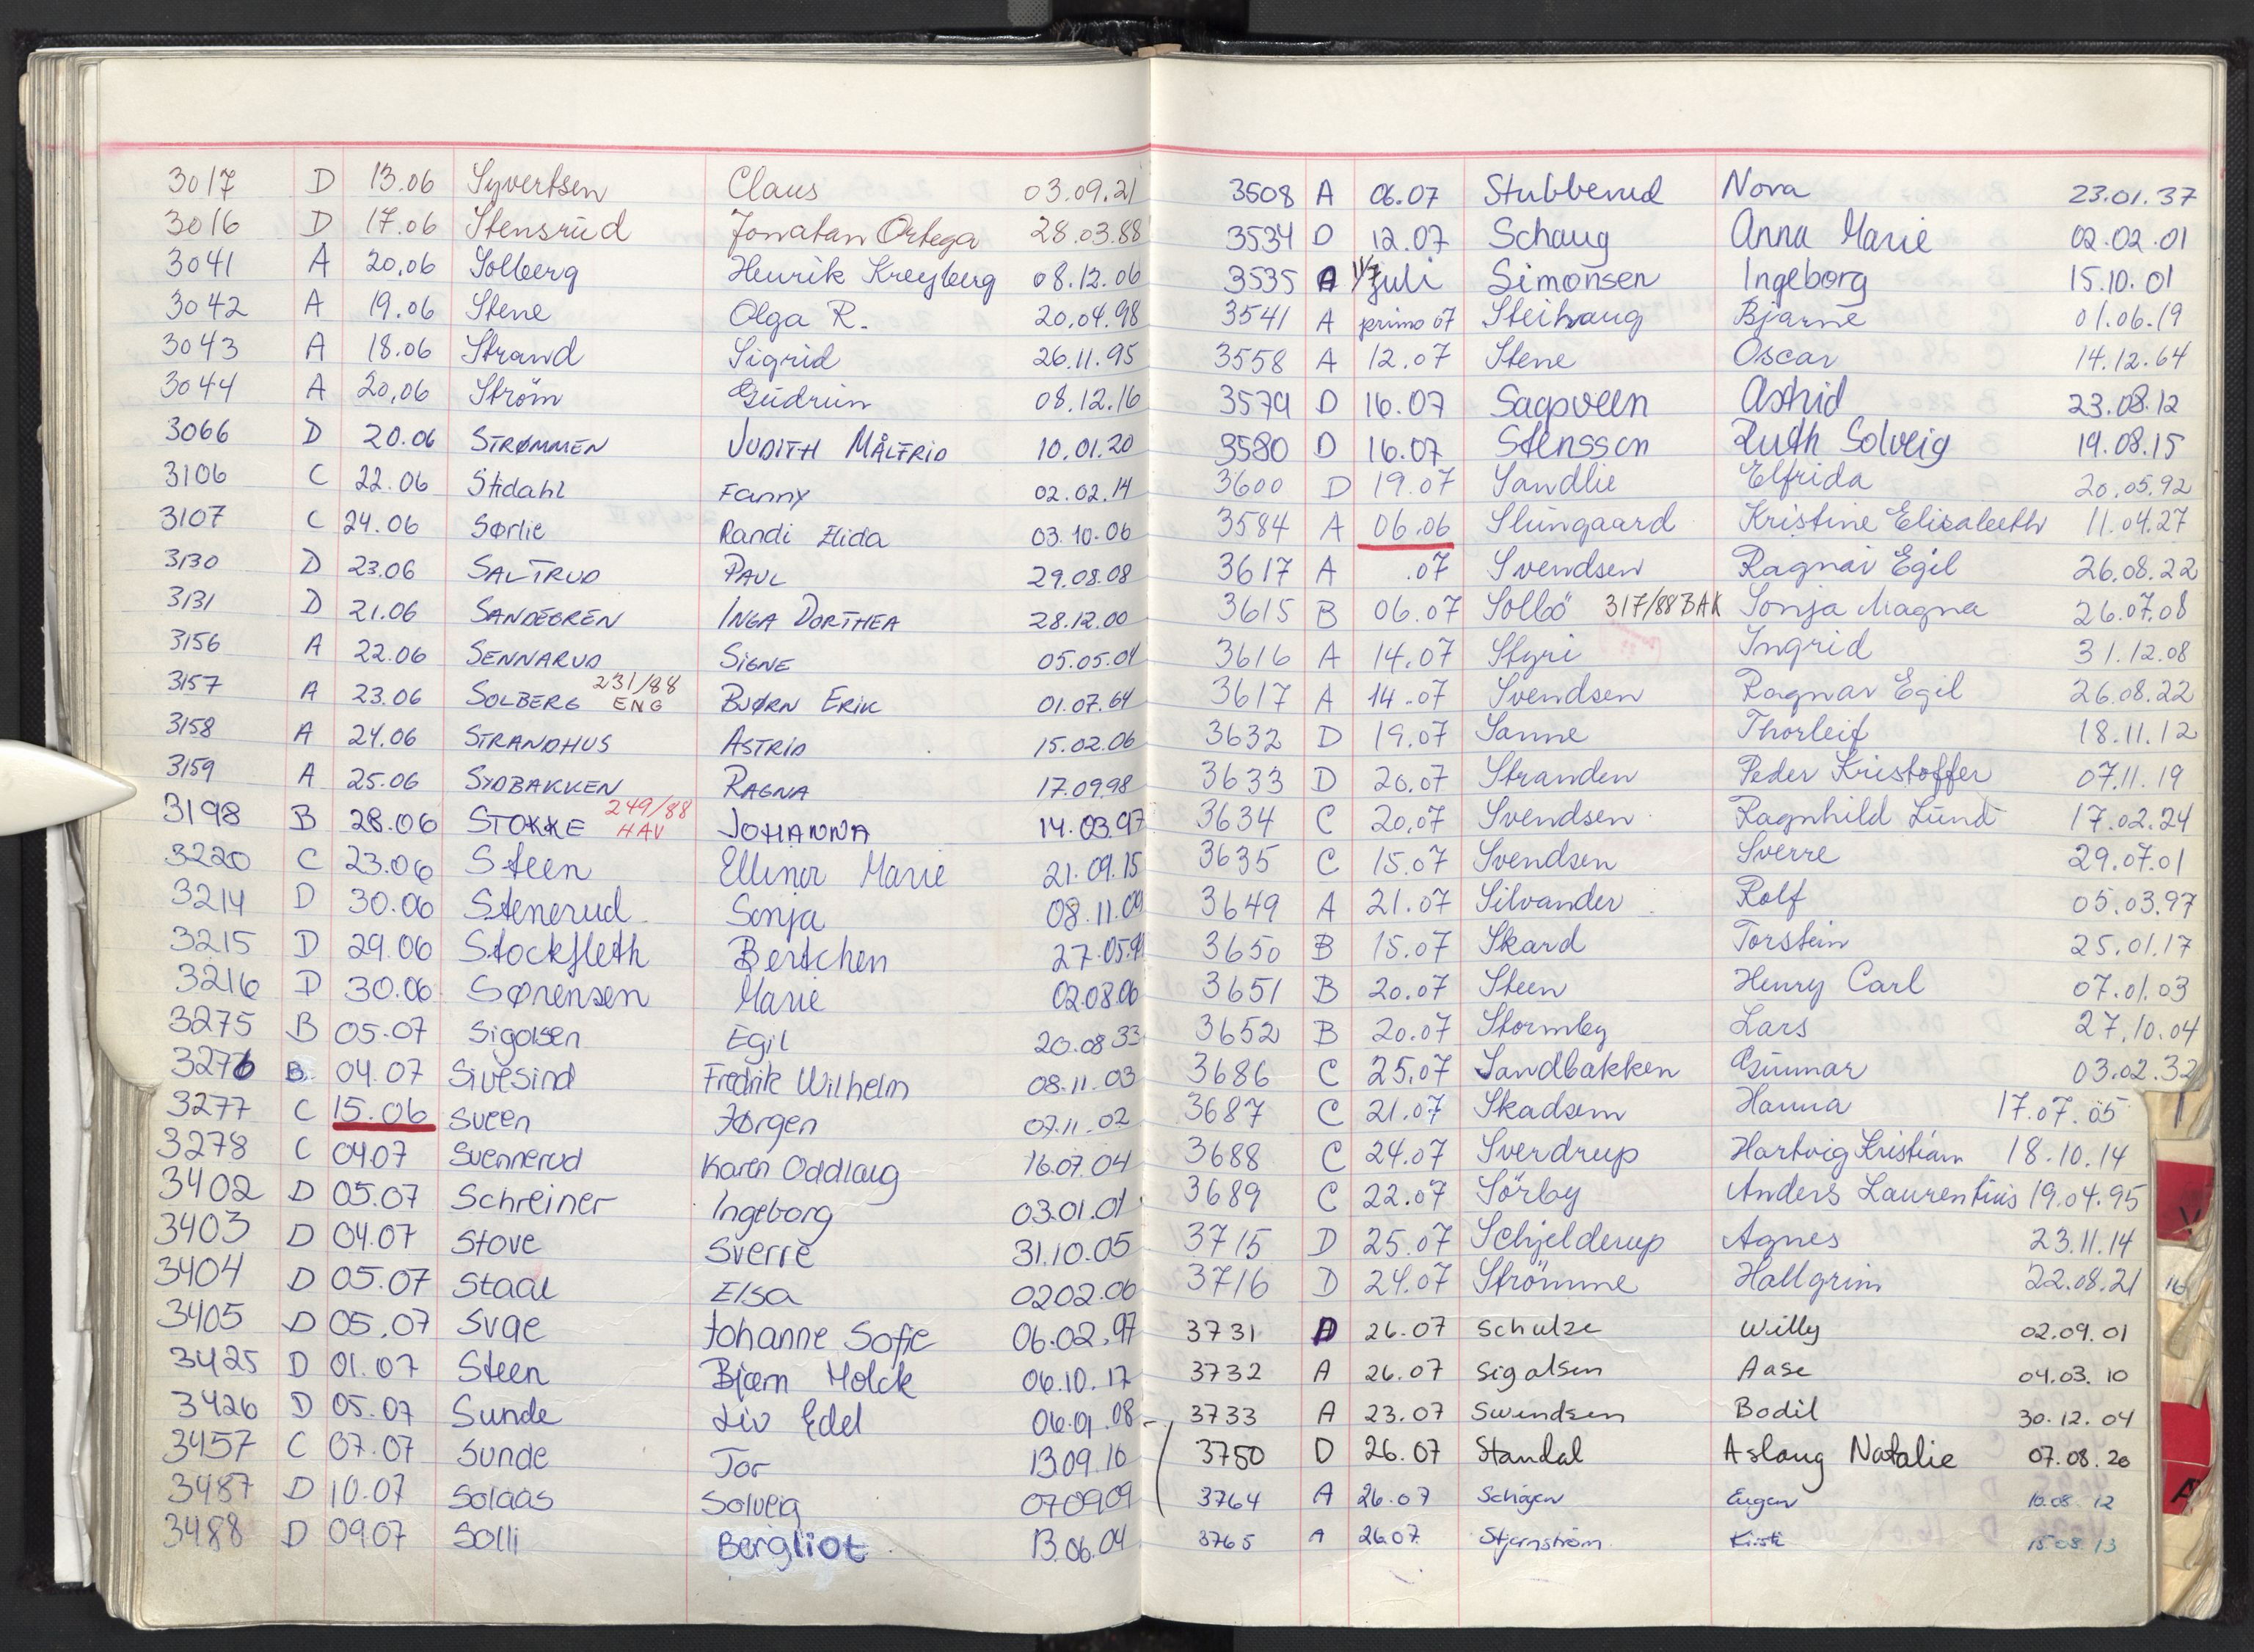 3017 D 13.06 Syvertsen Claus 03.09.21
3016 D 17.06 Stensrud Jonatan Ortega 28.03.88
3041 A 20.06 Solberg Henrik Kreyberg 08.12.06
3042 A 19.06 Stene Olga R. 20.04.98
3043 A 18.06 Strand Sigrid 26.11.95
3044 A 20.06 Ström Gudrun 08.12.16
3066 D 20.06 STRØMMEN JUDITH MÅLFRID 10.01.20
3106 C 22.06 Stidahl Fanny 02.02.14
3107 C 24.06 Sørlie Randi Elida 03.10.06
3130 D 23.06 SALTRUD PAUL 29.08.08
3131 D 21.06 SANDEGREN INGA DORTHEA 28.12.00
3156 A 22.06 SENNARUD SIGNE 05.05.04
3157 A 23.06 SOLBERG 231/88 ENG BJØRN ERIK 01.07.64
3158 A 24.06 STRANDHUS ASTRID 15.02.06
3159 A 25.06 SYDBAKKEN RAGNA 17.09.98
3198 B 28.06 STOKKE 249/88 HAV JOHANNA 14.03.97
3220 C 23.06 Steen Ellinor Marie 21.09.15
3214 D 30.06 Stenerud Sonja 08.11.09
3215 D 29.06 Stockfleth Bertchen 27.05.9
3216 D 30.06 Sørensen Marie 02.08.06
3275 B 05.07 Sigolsen Egil 20.08 33
3276 B 04.07 Sivesind Fredrik Wilhelm 08.11.03
3277 C 15.06 Sveen Jørgen 07.11.02
3278 C 04.07 Svennerud Karen Oddlaug 16.07.04
3402 D 05.07 Schreiner Ingeborg 03.01.01
3403 D 04.07 Stove Sverre 31.10.05
3404 D 05.07 Staal Elsa 0202.06
3405 D 05.07 Svae Johanne Sofie 06.02.97
3425 D 01.07 Steen Bjørn Holck 06.10.17
3426 D 05.07 Sunde Liv Edel 06.01.08
3457 C 07.07 Sunde Tor 13.09.10
3487 D 10.07 Solaas Solveig 070909
3488 D 09.07 Solli Bergliot 13.06.04
3508 A 06.07 Stubberud Nora 23.01.37
3534 D 12.07 Schaug Anna Marie 02.02.01
3535 A 11/7 juli Simonsen Ingeborg 15.10.01
3541 A primo 07 Steihaug Bjarne 01.06.19
3558 A 12.07 Stene Oscar 14.12.64
3579 D 16.07 Sagsveen Astrid 23.08.12
3580 D 16.07 Stensson Ruth Solveig 19.08.15
3600 D 19.07 Sandlie Elfrida 20.05.92
3584 A 06.06 Slungaard Kristine Elisabeth 11.04.27
3617 A .07 Svendsen Ragnar Egil 26.08.22
3615 B 06.07 Solbö 317/88 BAK Sonja Magna 26.07.08
3616 A 14.07 Styri Ingrid 31.12.08
3617 A 14.07 Svendsen Ragnar Egil 26.08.22
3632 D 19.07 Sanne Thorleif 18.11.12
3633 D 20.07 Stranden Peder Kristoffer 07.11.19
3634 C 20.07 Svendsen Ragnhild Lund 17.02.24
3635 C 15.07 Svendsen Sverre 29.07.01
3649 A 21.07 Silvander Rolf 05.03.97
3650 B 15.07 Skard Torstein 25.01.17
3651 B 20.07 Steen Henry Carl 07.01.03
3652 B 20.07 Stormby Lars 27.10.04
3686 C 25.07 Sandbakken Gunnar 03.02.32
3687 C 21.07 Skadsem Hanna 17.07.05
3688 C 24.07 Sverdrup Hartvig Kristian 18.10.14
3689 C 22.07 Sörby Anders Laurentius 19.04.95
3715 D 25.07 Schjelderup Agnes 23.11.14
3716 D 24.07 Strömme Hallgrim 22.08.21
3731 A 26.07 Schulze Willy 02.09.01
3732 A 26.07 Sigalsen Aase 04.03.10
3733 A 23.07 Swendsen Bodil 30.12.04
3750 D 26.07 Standal Aslaug Natalie 07.08.20
3764 A 26.07 Schøjen Eugen 10.08.12
3765 A 26.07 Stjernstrøm Kirsti 15.08.13